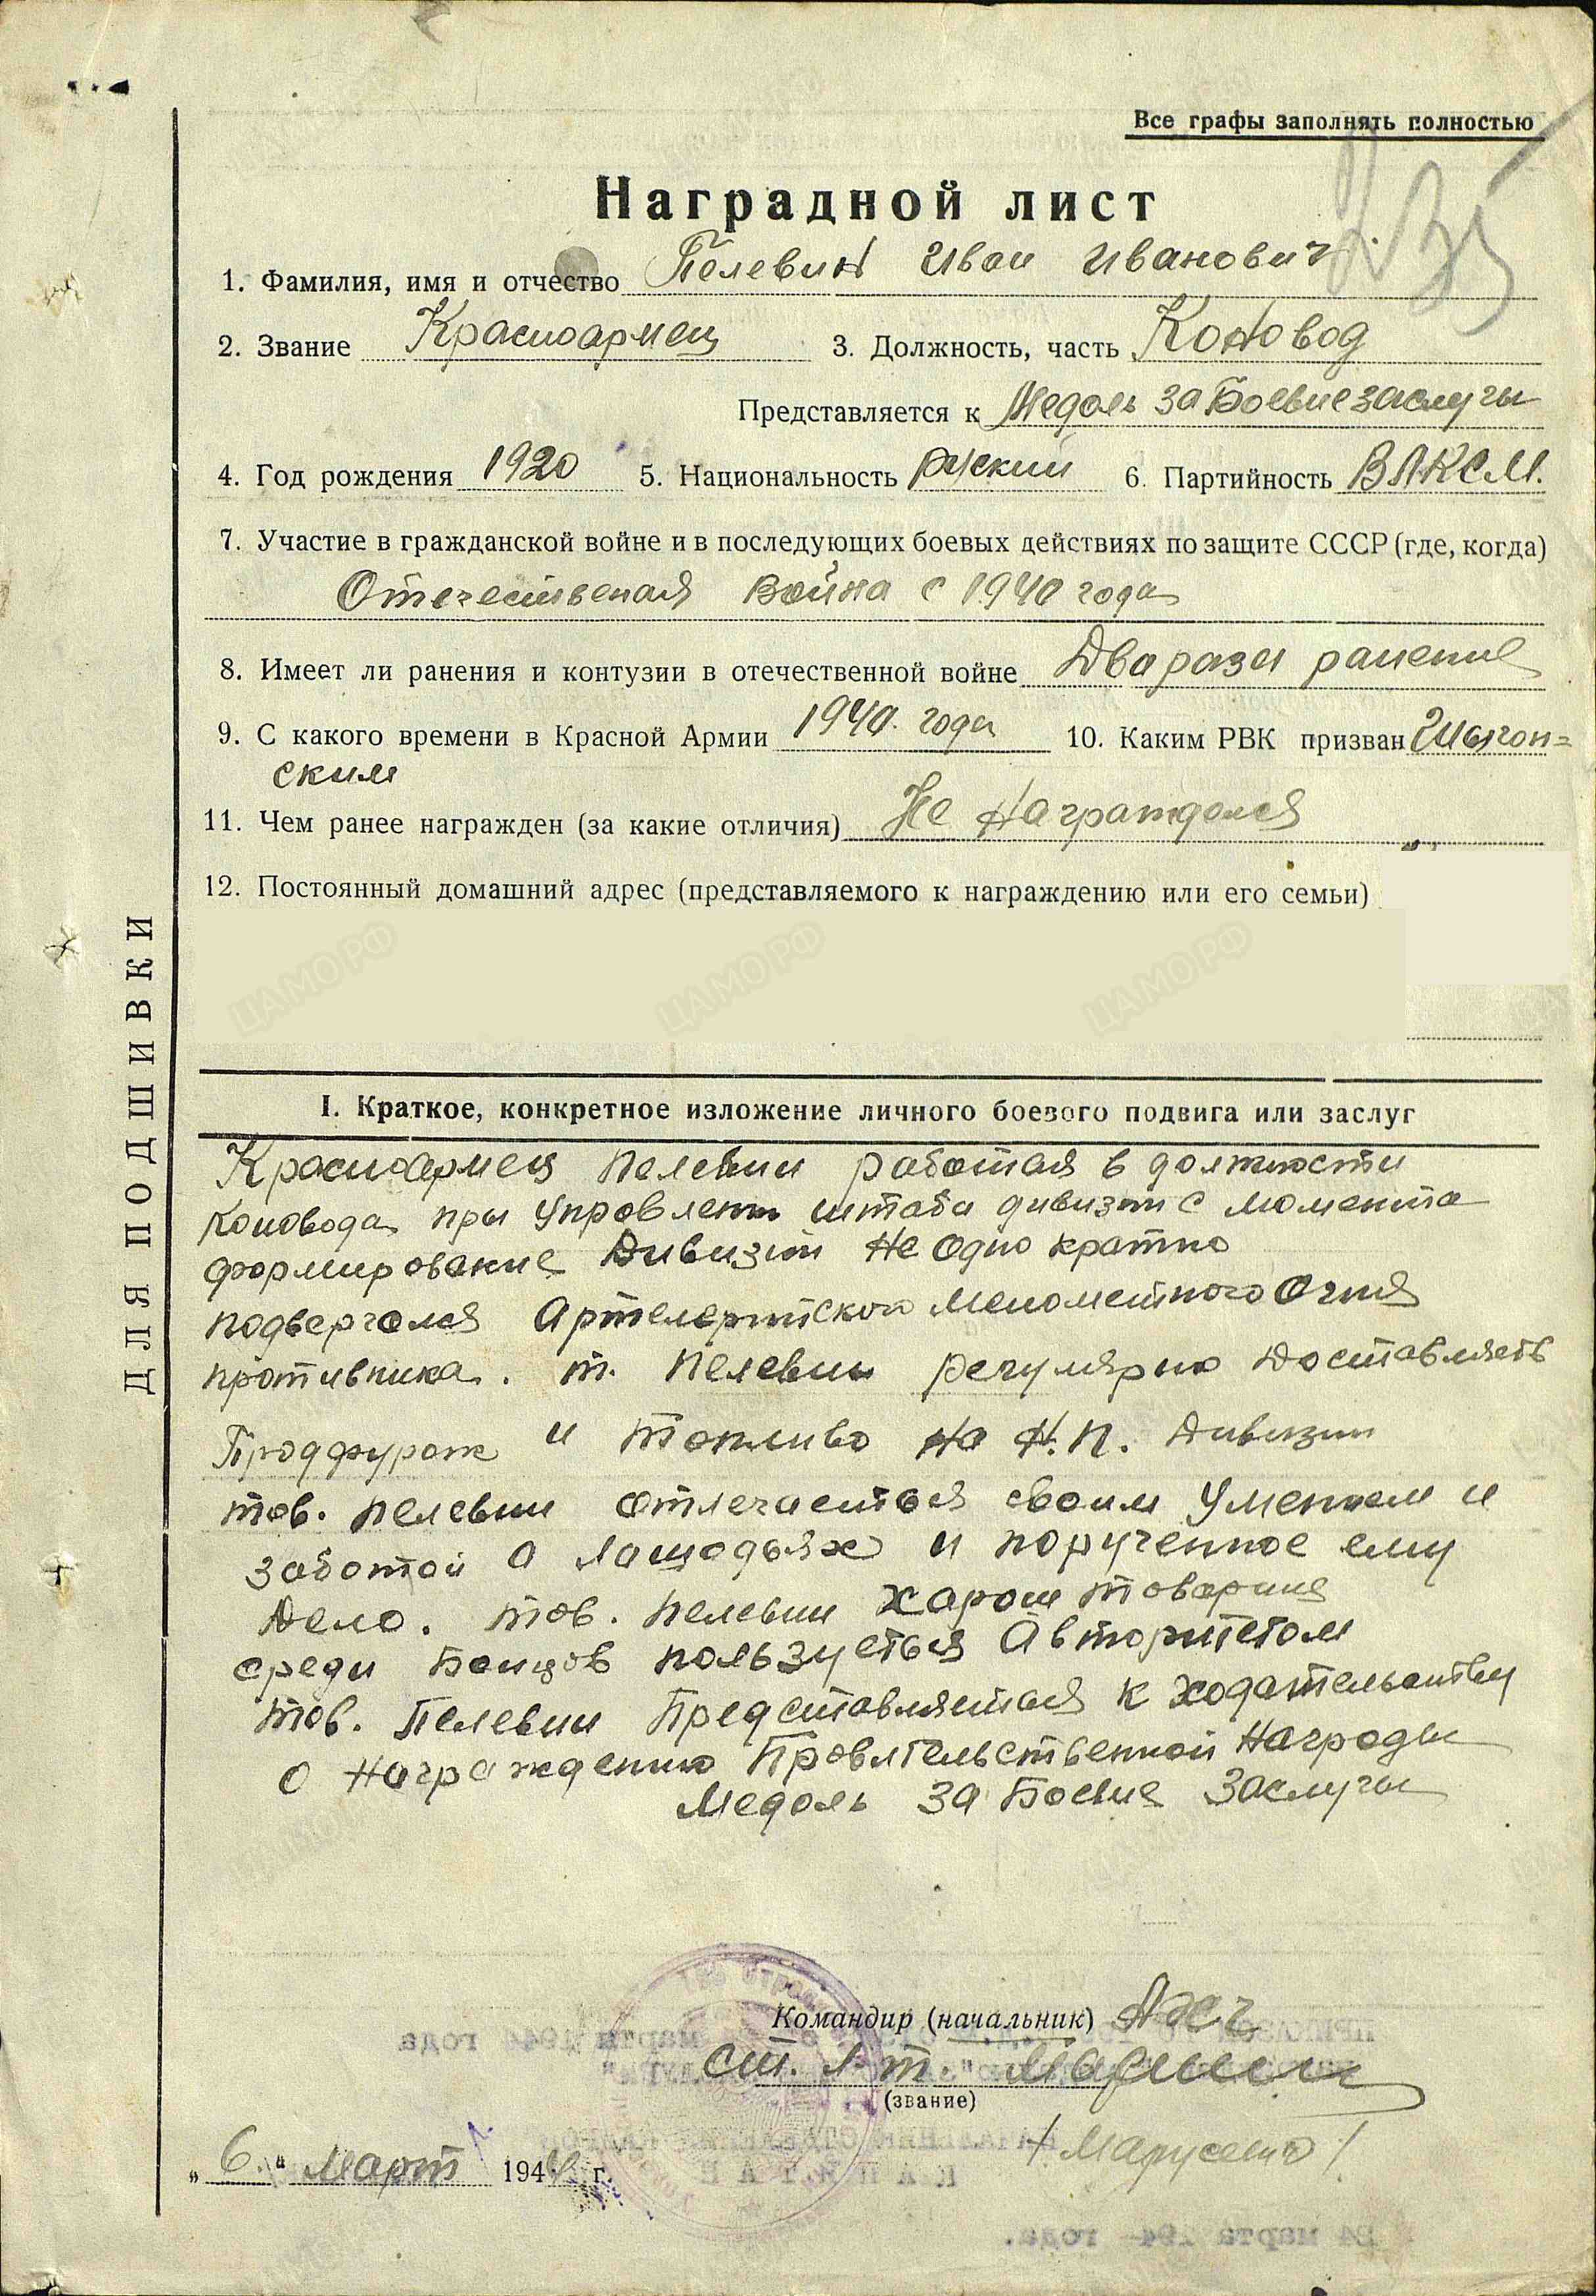 Все графы заполнять полностью
235
Наградной лист
1. Фамилия, имя и отчество Пелевин Иван Иванович
2. Звание Красноармец 3. Должность, часть Коновод
Представляется к Медаль за Боевые заслугы
4. Год рождения 1920 5. Национальность руский 6. Партийность ВЛКСМ.
7. Участие в гражданской войне и в последующих боевых действиях по защите СССР (где, когда)
Отечественая война с 1940 года
8. Имеет ли ранения и контузии в отечественной войне Два разы ранение
9. С какого времени в Красной Армии 1940. года 10. Каким РВК призван Шыгон=
ским
11. Чем ранее награжден (за какие отличия) Не Награтдался
12. Постоянный домашний адрес (представляемого к награждению или его семьи)
ЦАМО РФ ЦАМО РФ ЦАМО РФ
ДЛЯ ПОДШИВКИ
I. Краткое, конкретное изложение личного боевого подвига или заслуг
Красноармец Пелевин работая в должности
коновода пры управлении штаба дивизии с момента
формирование Дивизии Не одно кратно
подвергался Артелерийского Меномётного Огня
противника. т. Пелевин регулярно Доставлять
Продфураж и топливо на Н.П. Дивизии
тов. Пелевин отлечается своим Умением и
заботой о лашодьях и порученное ему
Дело. тов. Пелевин харош товарищ
среди Боицов пользуеться Авторитетом
тов. Пелевин Представляется к ходательству
о Награждению Провлтельственной Награды
Медаль за Боевые Заслугы
Командир (начальник) АХЧ
ст. л-т.
(звание)
/Марусенко/
„6." Март 1944 г.
24 марта 194 года.